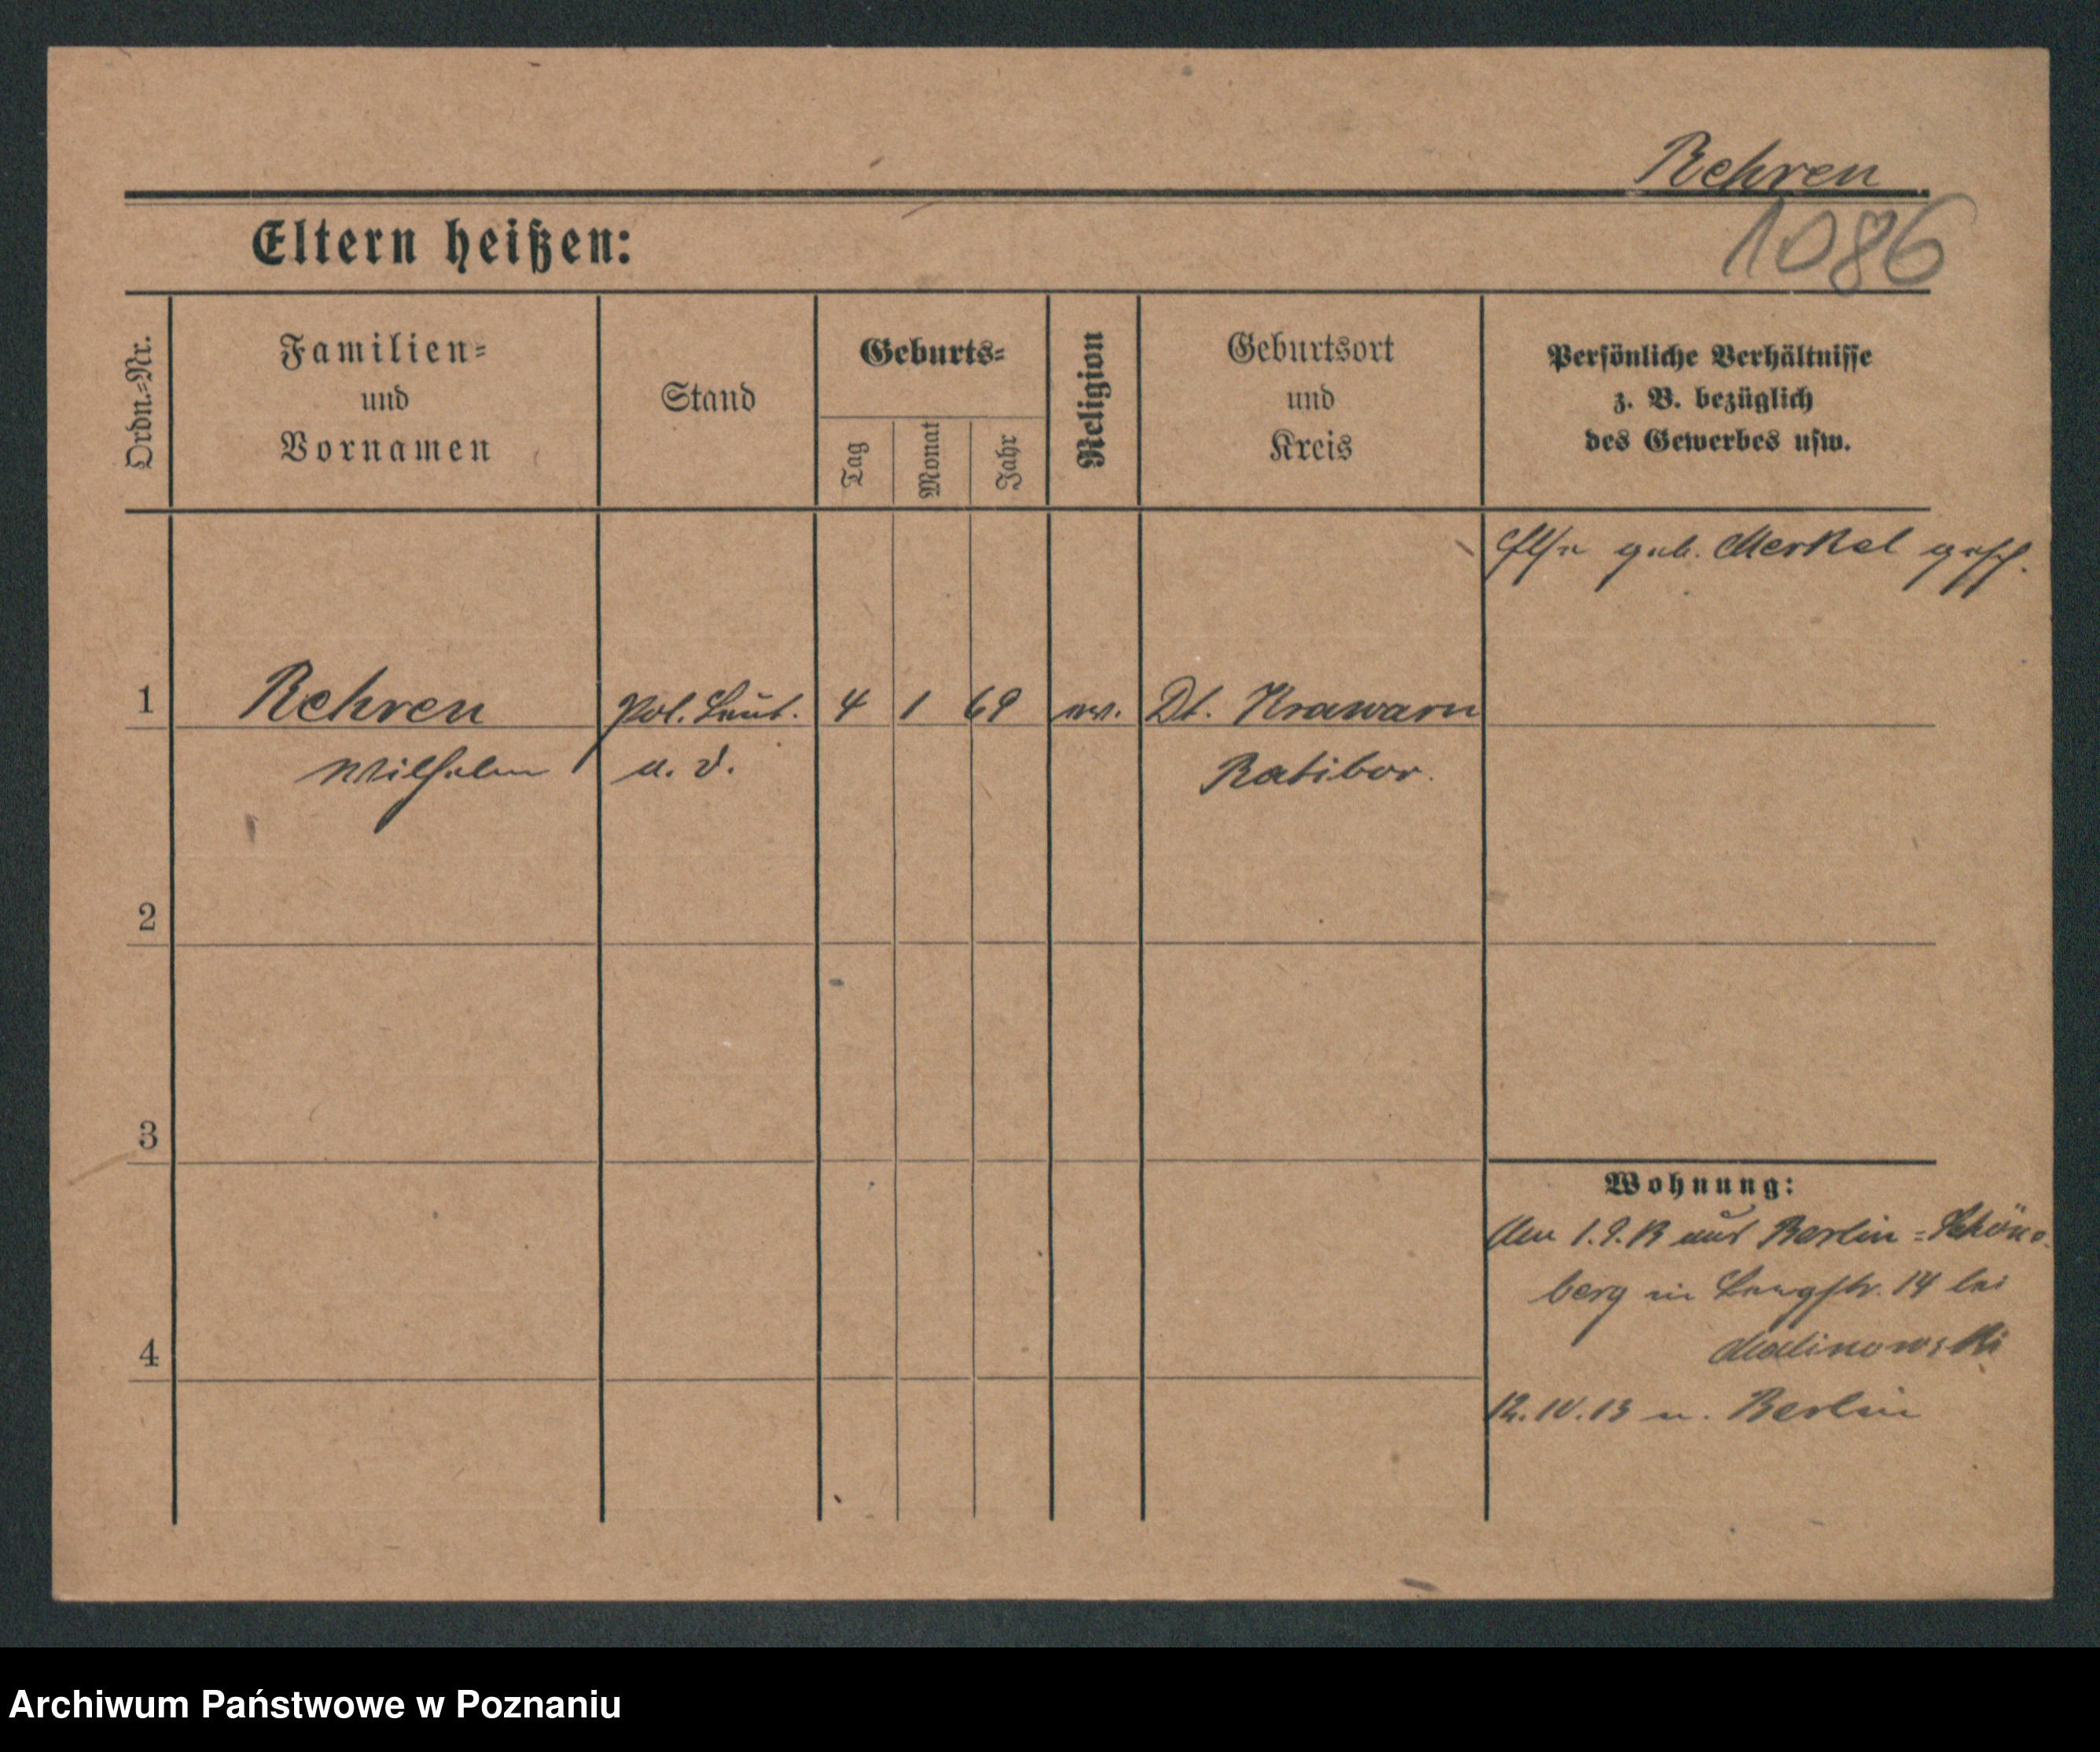 Rehren
1086
Eltern heißen:
Ordn.=Nr.
Familien=
und
Vornamen
Stand
Geburts=
Tag
Monat
Jahr
Religion
Geburtsort
und
Kreis
Persönliche Verhältnisse
z. B. bezüglich
des Gewerbes usw.
geb. Merkel gesch.
1
Rehren
Pol. Leut.
4
1
69
ev.
Dt. Krawarn
Wilhelm
a. D.
Ratibor.
2
3
4
Wohnung:
1.9. aus Berlin=Schöne-
berg in Langstr. 14 bei
Malinowski
12.10.13 n. Berlin
Archiwum Państwowe w Poznaniu